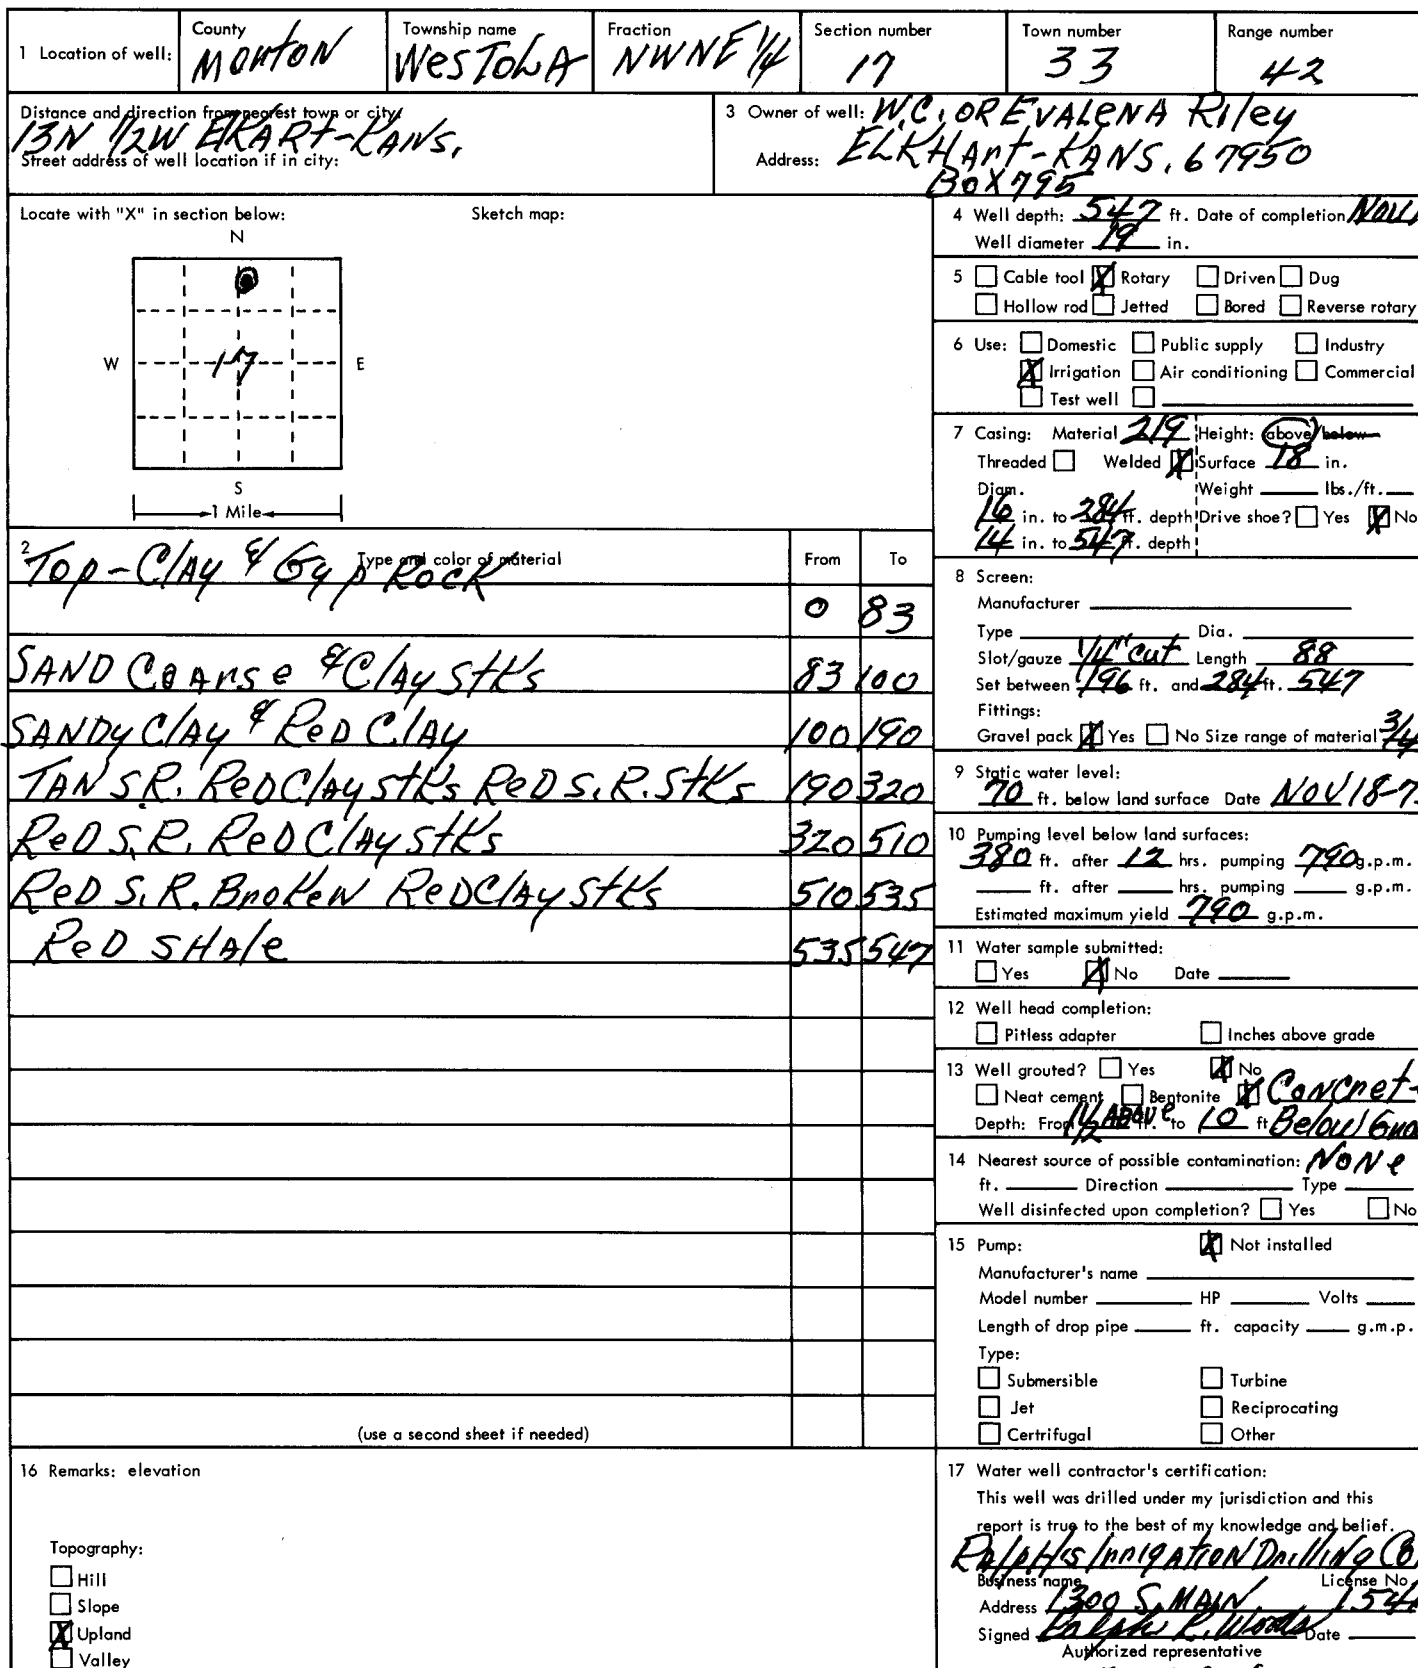 1 Location of well:
County
Morton
Township name
WesTolA
Fraction
NWNE 1/4
Section number
17
Town number
33
Range number
42
Distance and direction from nearest town or city:
13N 1/2W ElKART-KANS.
Street address of well location if in city:
3 Owner of well: W.C. OR EVALENA Riley
Address: ELKHArt-KANS. 67950
BOX 795
Locate with "X" in section below:
Sketch map:
N
W
17
E
S
1 Mile
2 Type and color of material
From
To
Top-Clay & Gyp Rock
0 83
SAND Coarse & Clay stks 83 100
SANDy Clay & ReD Clay 100 190
TAN S.R. ReD Clay stks ReD S.R. Stks 190 320
ReD S.R. ReD Clay stks 320 510
ReD S.R. BroKeN ReD Clay stks 510 535
ReD SHAle 535 547
(use a second sheet if needed)
4 Well depth: 547 ft. Date of completion
Well diameter 19 in.
5 Cable tool X Rotary Driven Dug
Hollow rod Jetted Bored Reverse rotary
6 Use: Domestic Public supply Industry
X Irrigation Air conditioning Commercial
Test well
7 Casing: Material 219 Height: above/below
Threaded Welded X Surface 18 in.
Diam. Weight lbs./ft.
16 in. to 284 ft. depth Drive shoe? Yes X No
14 in. to 547 ft. depth
8 Screen:
Manufacturer
Type Dia.
Slot/gauze 1/4" cut Length 88
Set between 196 ft. and 284 ft. 547
Fittings:
Gravel pack X Yes No Size range of material 3/4
9 Static water level:
70 ft. below land surface Date NOV 18-7
10 Pumping level below land surfaces:
380 ft. after 12 hrs. pumping 790 g.p.m.
ft. after hrs. pumping g.p.m.
Estimated maximum yield 790 g.p.m.
11 Water sample submitted:
Yes X No Date
12 Well head completion:
Pitless adapter Inches above grade
13 Well grouted? Yes X No
Neat cement Bentonite X Concret
Depth: From 1 1/2 ABove ft. to 10 ft Below
14 Nearest source of possible contamination: NONe
ft. Direction Type
Well disinfected upon completion? Yes No
15 Pump: X Not installed
Manufacturer's name
Model number HP Volts
Length of drop pipe ft. capacity g.m.p.
Type:
Submersible Turbine
Jet Reciprocating
Certrifugal Other
16 Remarks: elevation
Topography:
Hill
Slope
X Upland
Valley
17 Water well contractor's certification:
This well was drilled under my jurisdiction and this
report is true to the best of my knowledge and belief.
Ralph's IrrigATioN Drilling Co
Business name License No
Address 1300 S. MAIN 154
Signed Ralph R. Woods Date
Authorized representative